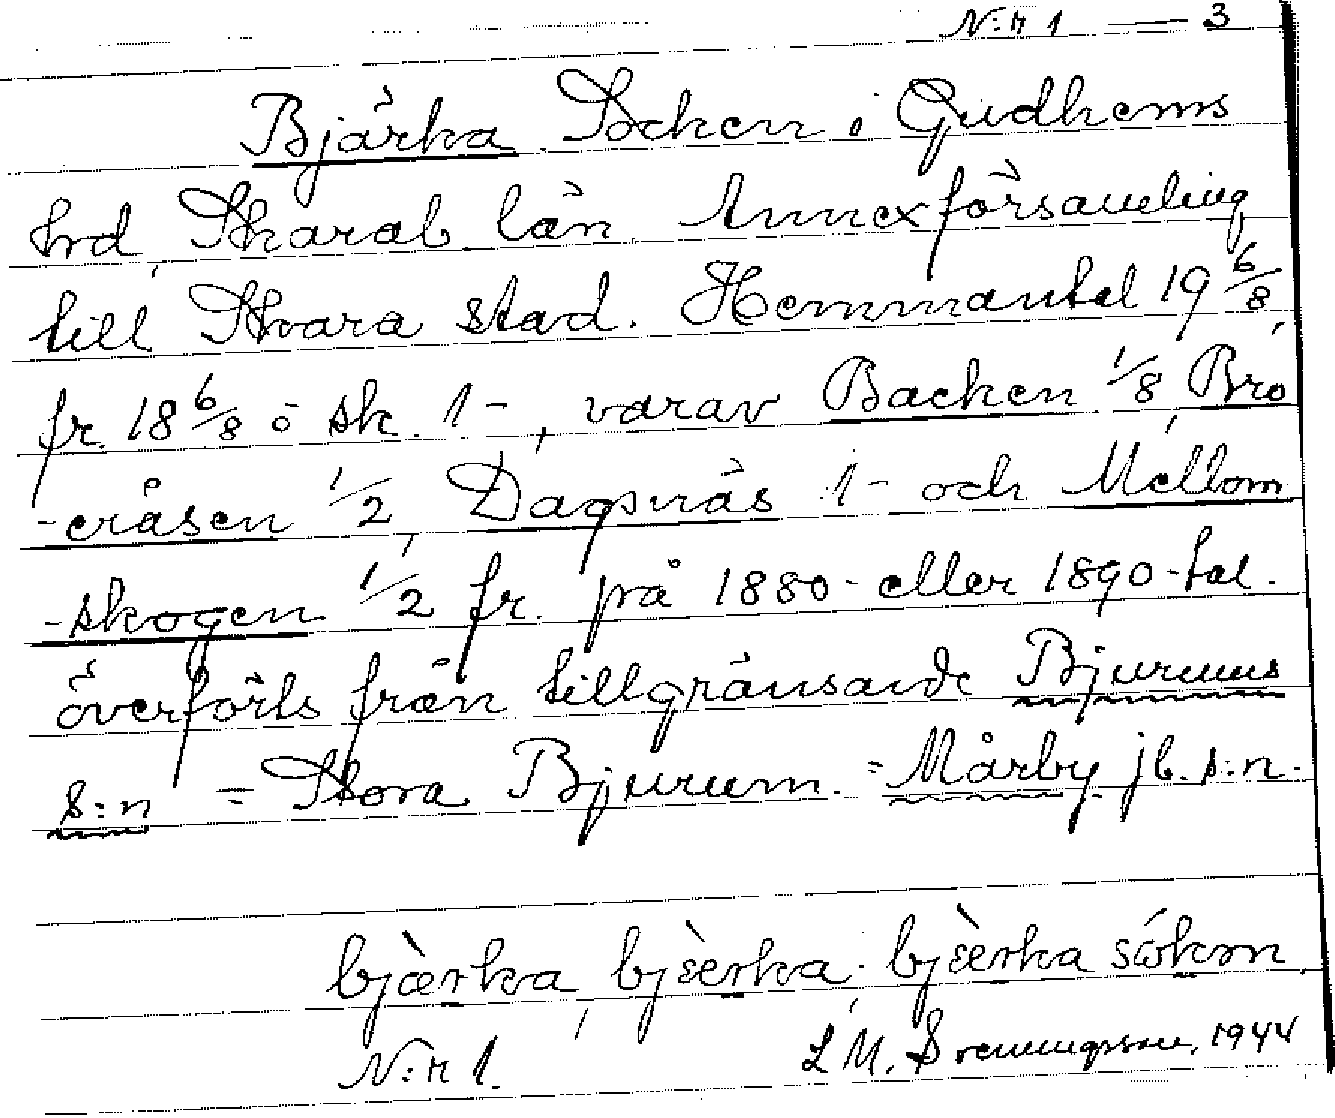 N:r 1 — 3
Bjärka Socken i Gudhems
hrd, Skarab. län. Annexförsamling
till Skara stad. Hemmantal 19 6/8,
fr. 18 6/8 ö sk. 1-, varav Backen 1/8, Bro
-eråsen 1/2, Dagsnäs 1- och Mellom
-skogen 1/2 fr. på 1880- eller 1890-tal.
överförts från tillgränsande Bjurums
s:n = Stora Bjurum. = Mårby jb. s:n.
bjærka, bjærka, bjærka sókm
N:r 1. L M. Svenungsson, 1944